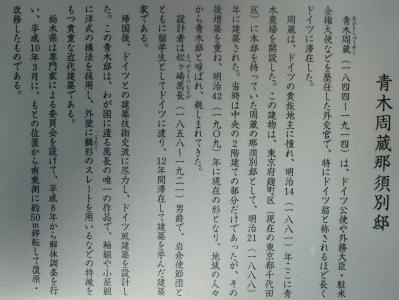 青木周蔵那須別邸
青木周蔵(一八四四〜一九一四)は、ドイツ公使や外務大臣・駐米
全権大使などを歴任した外交官で、特にドイツ翁と称されるほど長く
ドイツに滞在した。
周蔵は、ドイツの貴族地主に憧れ、明治14(一八八一)年ここに青
木農場を開設した。この建物は、東京府麹町区(現在の東京都千代田
区)に本邸を持っていた周蔵の那須別邸として、明治21(一八八八)
年に建築された。当時は中央の2階建ての部分だけであったが、その
後増築を重ね、明治42(一九〇九)年に現在の形となり、地域の人々
から青木邸と呼ばれ、親しまれてきた。
設計者は松ヶ崎萬長(一八五八〜一九二一)男爵で、岩倉使節団と
ともに留学生としてドイツに渡り、12年間滞在して建築を学んだ建築
家である。
帰国後、ドイツとの建築技術交流に尽力し、ドイツ風建築を設計し
た。この青木邸は、わが国に遺る萬長の唯一の作品で、軸組や小屋組
に洋式の構法を採用し、外壁に鱗形のスレートを用いるなどの特徴を
もつ貴重な近代建築である。
栃木県は専門家による委員会を設けて、平成8年から解体調査を行
い、平成10年3月に、もとの位置から南東側に約50m移転して復原・
改修したものである。